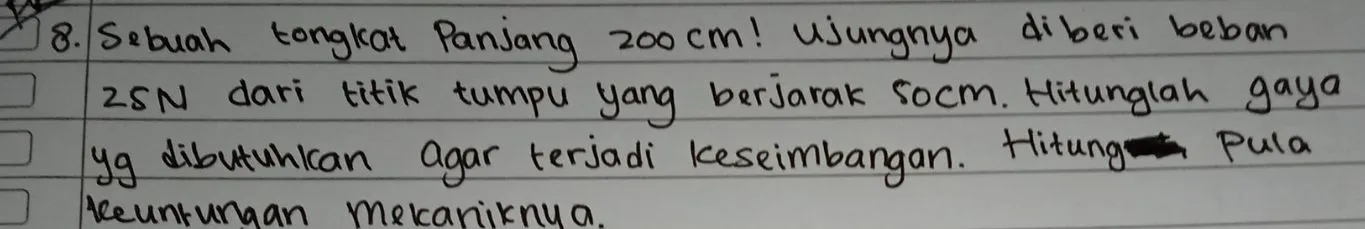 8. Sebuah tongkat Panjang 200 cm! Ujungnya diberi beban
25N dari titik tumpu yang berjarak 50cm. Hitunglah gaya
yg dibutuhkan agar terjadi keseimbangan. Hitung Pula
keuntungan mekaniknya.